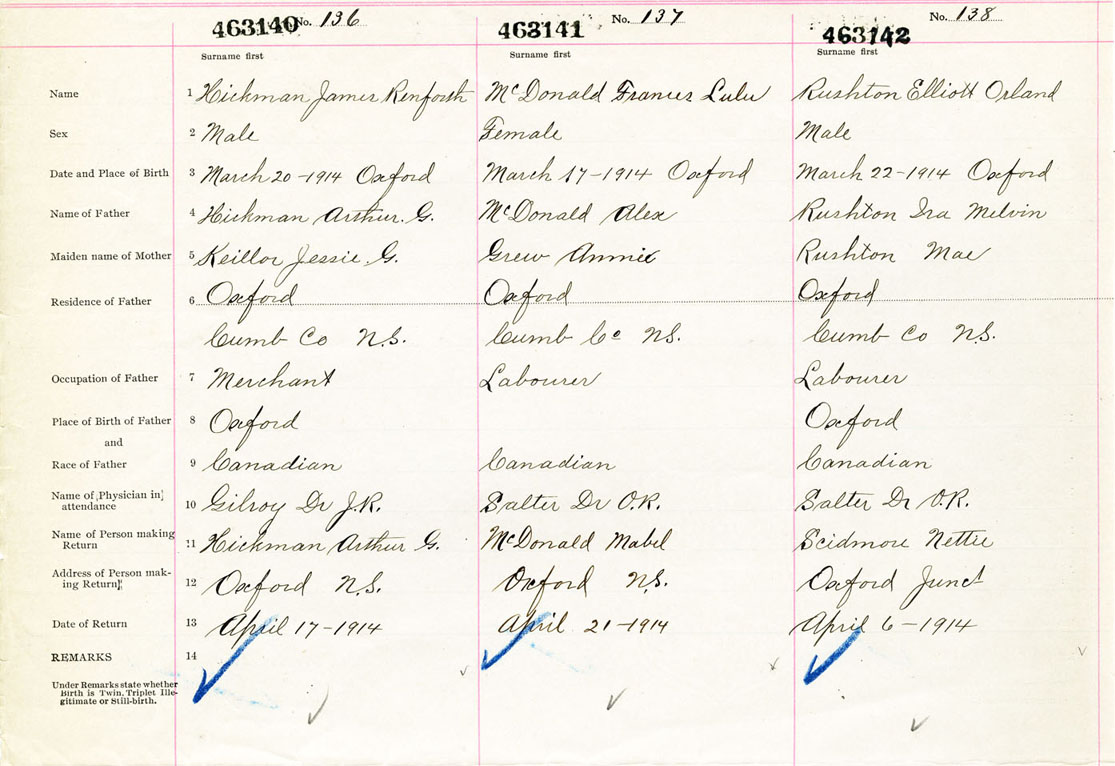 463140 No. 136 463141 No. 137 463142 No. 138
Surname first Surname first Surname first
Name 1 Hickman James Renforth McDonald Frances Lulu Rushton Elliott Orland
Sex 2 Male Female Male
Date and Place of Birth 3 March 20-1914 Oxford March 17-1914 Oxford March 22-1914 Oxford
Name of Father 4 Hickman Arthur. G. McDonald Alex Rushton Ira Melvin
Maiden name of Mother 5 Keillor Jessie. G. Grew Annie Rushton Mae
Residence of Father 6 Oxford Oxford Oxford
Cumb Co N.S. Cumb Co N.S. Cumb Co N.S.
Occupation of Father 7 Merchant Labourer Labourer
Place of Birth of Father 8 Oxford Oxford
and
Race of Father 9 Canadian Canadian Canadian
Name of Physician in
attendance 10 Gilroy Dr J.R. Salter Dr O.R. Salter Dr O.R.
Name of Person making
Return 11 Hickman Arthur G. McDonald Mabel Scidmore Nettie
Address of Person mak-
ing Return 12 Oxford N.S. Oxford N.S. Oxford Junct
Date of Return 13 April 17-1914 April 21-1914 April 6-1914
REMARKS 14
Under Remarks state whether
Birth is Twin, Triplet Ille-
gitimate or Still-birth.